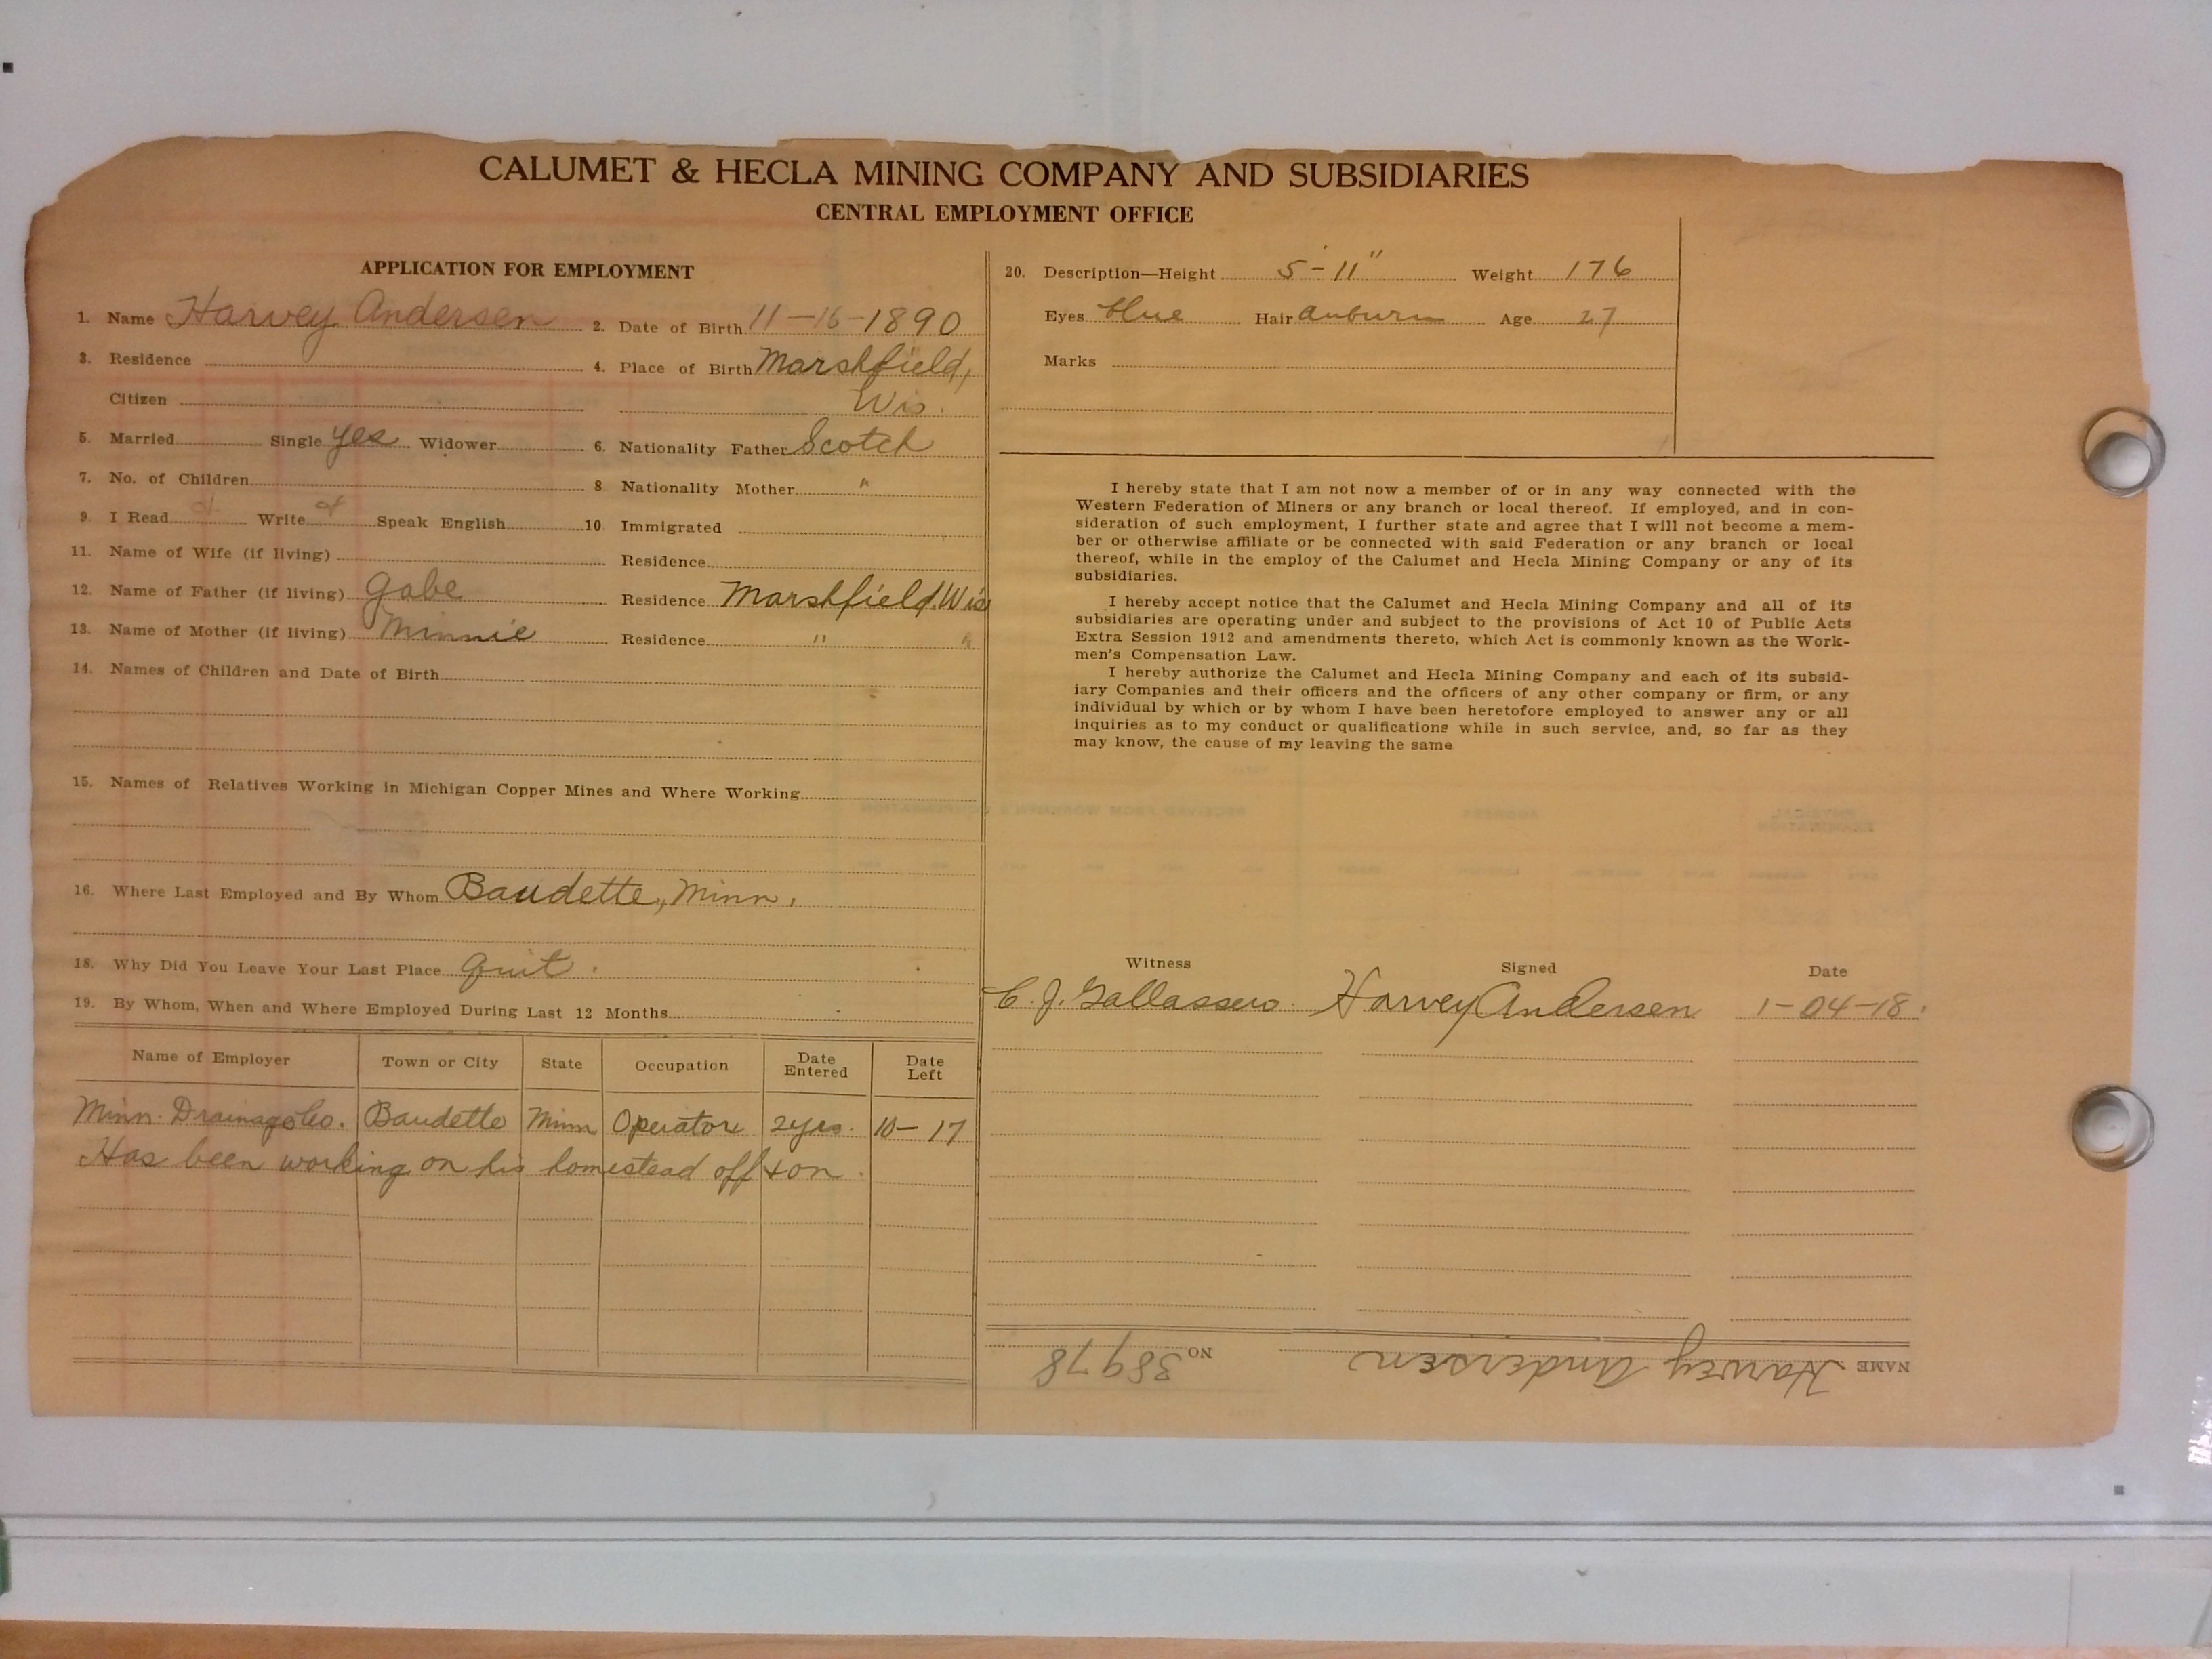 CALUMET & HECLA MINING COMPANY AND SUBSIDIARIES
CENTRAL EMPLOYMENT OFFICE
APPLICATION FOR EMPLOYMENT
1. Name Harvey Andersen 2. Date of Birth 11-16-1890
3. Residence 4. Place of Birth Marshfield,
Citizen Wis.
5. Married Single yes Widower 6. Nationality Father Scotch
7. No. of Children 8 Nationality Mother "
9. I Read Write Speak English 10 Immigrated
11. Name of Wife (if living) Residence
12. Name of Father (if living) Gabe Residence Marshfield, Wis
13. Name of Mother (if living) Minnie Residence " "
14. Names of Children and Date of Birth
15. Names of Relatives Working in Michigan Copper Mines and Where Working
16. Where Last Employed and By Whom Baudette, Minn.
18. Why Did You Leave Your Last Place Quit.
19. By Whom, When and Where Employed During Last 12 Months
Name of Employer Town or City State Occupation Date Entered Date Left
Minn. Drainage Co. Baudette Minn Operator 2 yrs. 10-17
Has been working on his homestead off + on.
20. Description—Height 5'-11" Weight 176
Eyes blue Hair auburn Age 27
Marks
I hereby state that I am not now a member of or in any way connected with the
Western Federation of Miners or any branch or local thereof. If employed, and in con-
sideration of such employment, I further state and agree that I will not become a mem-
ber or otherwise affiliate or be connected with said Federation or any branch or local
thereof, while in the employ of the Calumet and Hecla Mining Company or any of its
subsidiaries.
I hereby accept notice that the Calumet and Hecla Mining Company and all of its
subsidiaries are operating under and subject to the provisions of Act 10 of Public Acts
Extra Session 1912 and amendments thereto, which Act is commonly known as the Work-
men's Compensation Law.
I hereby authorize the Calumet and Hecla Mining Company and each of its subsid-
iary Companies and their officers and the officers of any other company or firm, or any
individual by which or by whom I have been heretofore employed to answer any or all
inquiries as to my conduct or qualifications while in such service, and, so far as they
may know, the cause of my leaving the same
Witness Signed Date
C. J. Harvey Andersen 1-04-18.
NAME Harvey Andersen NO 38978